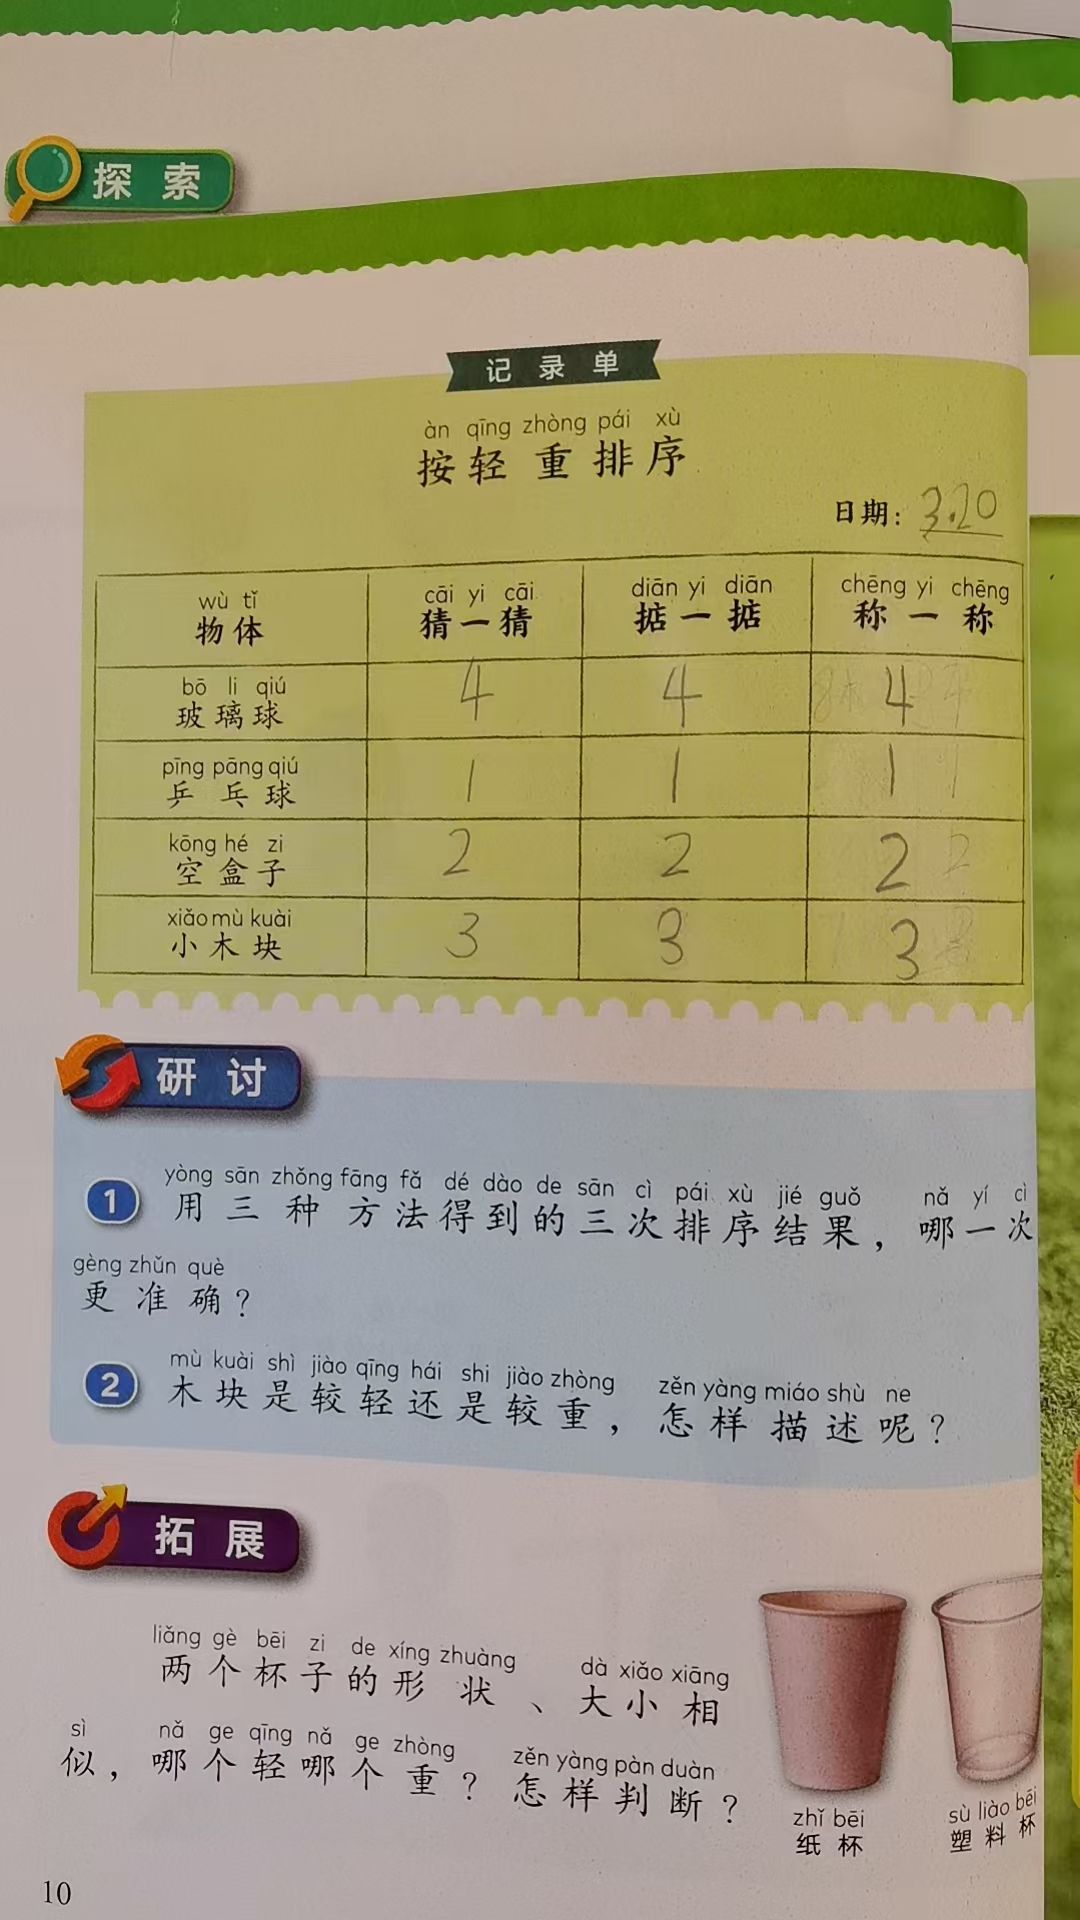 探索
记录单
àn qīng zhòng pái xù
按轻重排序
日期：3.20
wù tǐ cāi yi cāi diān yi diān chēng yi chēng
物体 猜一猜 掂一掂 称一称
bō li qiú
玻璃球 4 4 4
pīng pāng qiú
乒乓球 1 1 1
kōng hé zi
空盒子 2 2 2
xiǎo mù kuài
小木块 3 3 3
研讨
yòng sān zhǒng fāng fǎ dé dào de sān cì pái xù jié guǒ nǎ yí cì
1 用三种方法得到的三次排序结果，哪一次
gèng zhǔn què
更准确？
mù kuài shì jiào qīng hái shi jiào zhòng zěn yàng miáo shù ne
2 木块是较轻还是较重，怎样描述呢？
拓展
liǎng gè bēi zi de xíng zhuàng dà xiǎo xiāng
两个杯子的形状、大小相
sì nǎ ge qīng nǎ ge zhòng zěn yàng pàn duàn
似，哪个轻哪个重？怎样判断？
zhǐ bēi sù liào bēi
纸杯 塑料杯
10